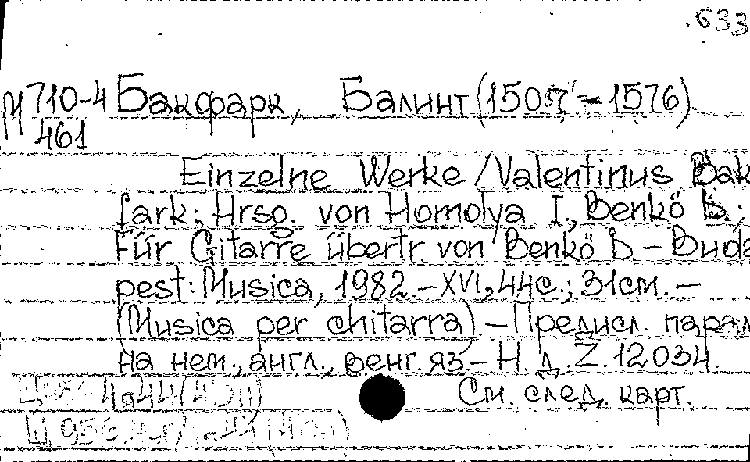 .633
М 710-4 Бакфарк, Балинт (1507-1576)
461
Einzelne Werke / Valentinus Bak
fark; Hrsg. von Homolya I., Benkö D.;
Für Gitarre übertr. von Benkö D. – Buda
pest: Musica, 1982. – XVI, 44с.; 31см. –
(Musica per chitarra). – Предисл. парал
на нем., англ., венг. яз. – Н. д. Z. 12034.
См. след. карт.